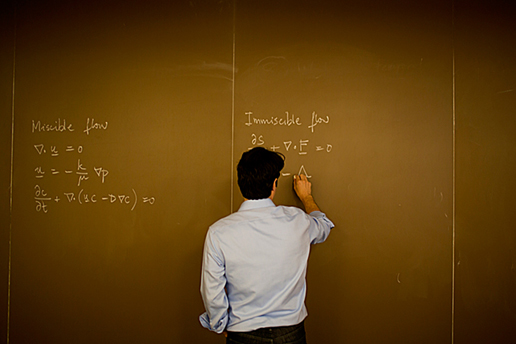 Miscible flow
∇·u = 0
u = - k/μ ∇p
∂c/∂t + ∇·(uc - D∇c) = 0
Immiscible flow
∂s + ∇·F = 0
-